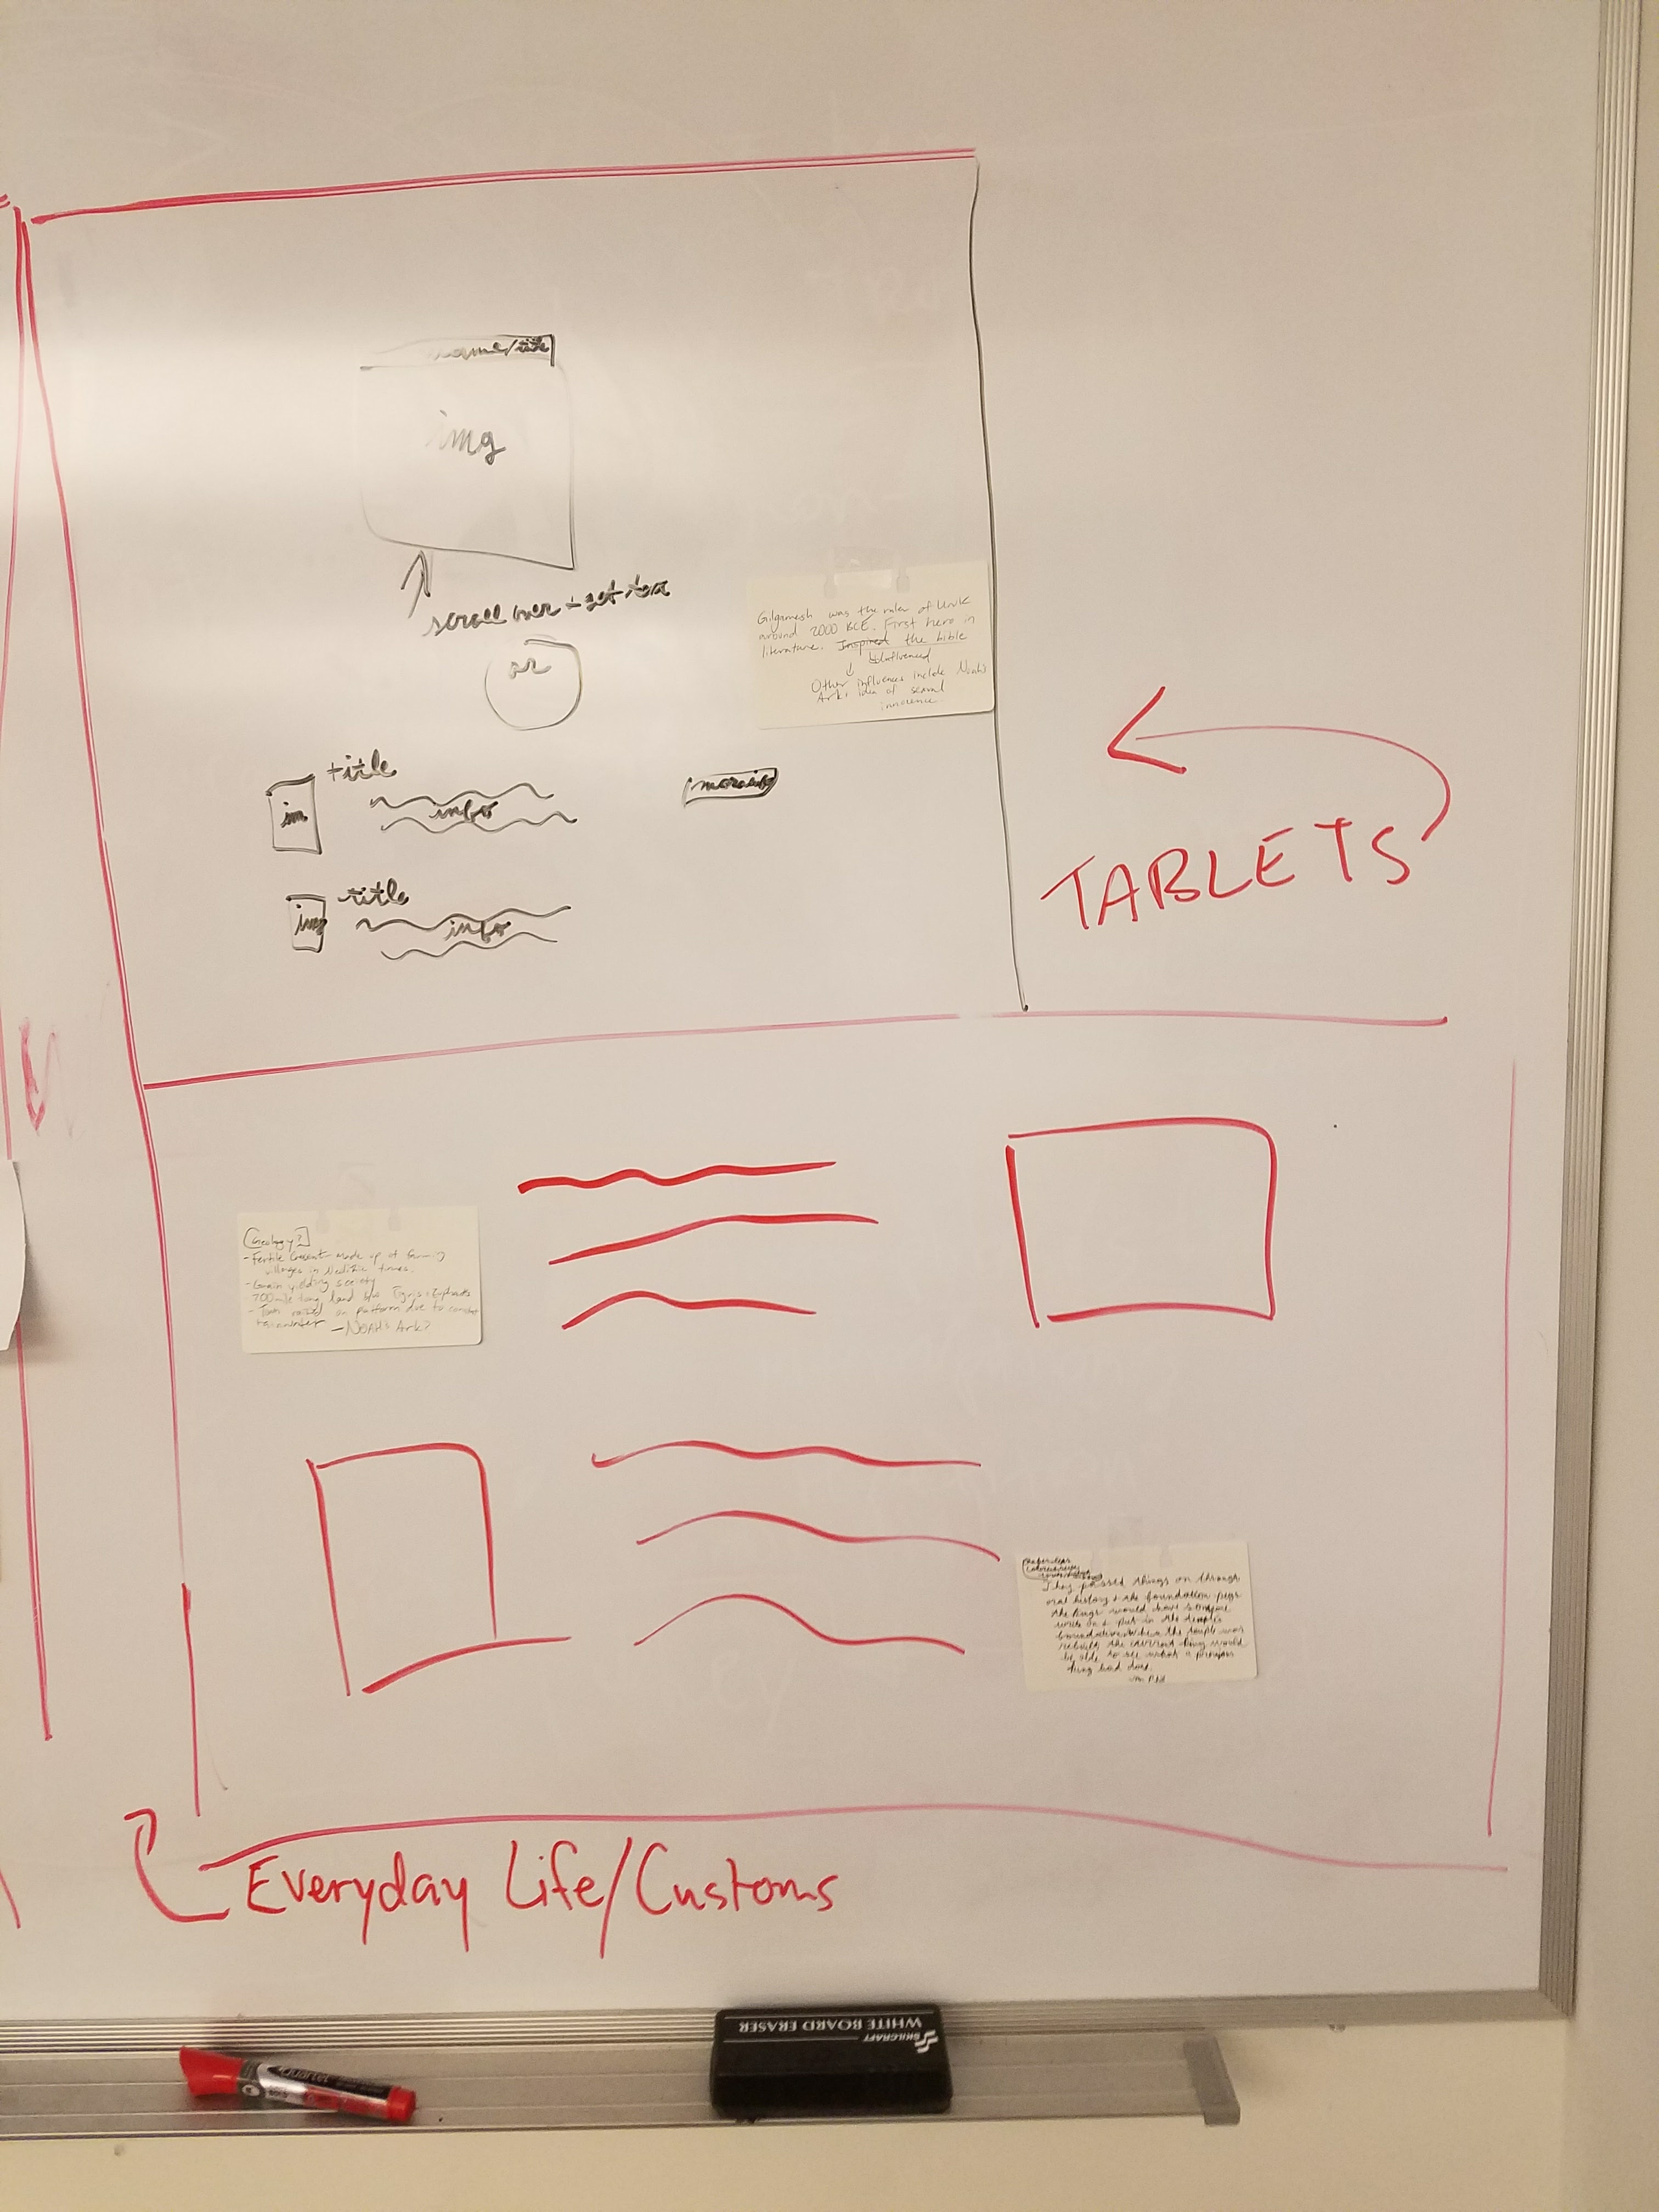 name/title
img
scroll over + get text
or
title
info
title
img
info
Gilgamesh was the ruler of Uruk
around 2000 BCE. First hero in
literature. Inspired the bible
influenced
Other influences include Noah's
Ark idea of sexual
innocence.
TABLETS
[Geology?]
- Fertile Crescent made up of farming
villages in Neolithic times.
- Grain yielding society
700 mile long land b/w Tigris + Euphrates
- Town raised on platform due to constant
- NOAH'S Ark?
They passed things on through
oral history & the foundation pegs
the kings would have someone
write on & put in the temple's
foundation. When the temple was
rebuilt, the current king would
be able to see what a previous
king had done.
Everyday Life/Customs
SKILCRAFT
WHITE BOARD ERASER
Quartet